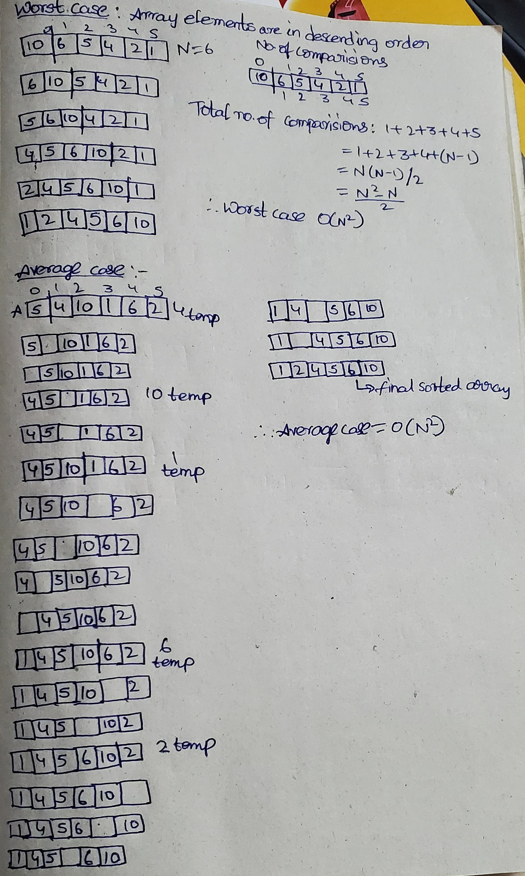 Worst case: Array elements are in descending order
0 1 2 3 4 5
10 6 5 4 2 1 N=6
6 10 5 4 2 1
5 6 10 4 2 1
4 5 6 10 2 1
2 4 5 6 10 1
1 2 4 5 6 10
No of comparisions
0 1 2 3 4 5
10 6 5 4 2 1
1 2 3 4 5
Total no. of comparisions: 1+2+3+4+5
= 1+2+3+4+(N-1)
= N(N-1)/2
= N²-N
2
∴ Worst case O(N²)
Average case :-
0 1 2 3 4 5
A 5 4 10 1 6 2 4 temp
5 10 1 6 2
5 10 1 6 2
4 5 1 6 2 10 temp
4 5 1 6 2
4 5 10 1 6 2 1
temp
4 5 10 6 2
4 5 10 6 2
4 5 10 6 2
4 5 10 6 2
1 4 5 10 6 2 6
temp
1 4 5 10 2
1 4 5 10 2
1 4 5 6 10 2 2 temp
1 4 5 6 10
1 4 5 6 10
1 4 5 6 10
1 4 5 6 10
1 4 5 6 10
1 2 4 5 6 10
↳ final sorted array
∴ Average case = O(N²)